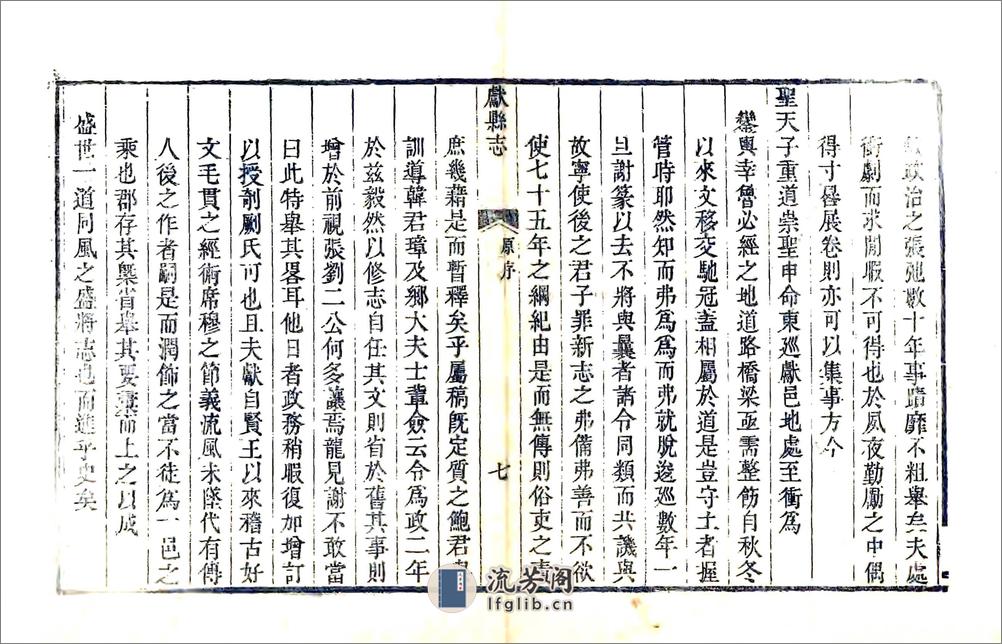 政治之張弛數十年事蹟靡不粗舉矣夫處
衝劇而求閒暇不可得也於夙夜勤勵之中偶
得寸晷展卷則亦可以集事方今
聖天子重道崇聖申命東巡獻邑地處至衝爲
鑾輿幸魯必經之地道路橋梁亟需整飭自秋冬
以來文移交馳冠蓋相屬於道是豈守土者握
管時耶然知而弗爲爲而弗就脫逡巡數年一
旦謝篆以去不將與曩者諸令同類而共譏與
故寧使後之君子罪新志之弗備弗善而不欲
使七十五年之綱紀由是而無傳則俗吏之責
獻縣志
原序
七
庶幾藉是而暫釋矣乎屬稿旣定質之鮑君
訓導韓君璋及鄉大夫士輩僉云令爲政二年
於兹毅然以修志自任其文則省於舊其事則
增於前視張劉二公何多讓焉龍見謝不敢當
曰此特舉其畧耳他日者政務稍暇復加增訂
以授剞劂氏可也且夫獻自賢王以來稽古好
文毛貫之經術席穆之節義流風未墜代有傳
人後之作者嗣是而潤飾之當不徒爲一邑之
乘也郡存其槩省舉其要彙而上之以成
盛世一道同風之盛將志也而進乎史矣
流芳阁
lfglib.cn